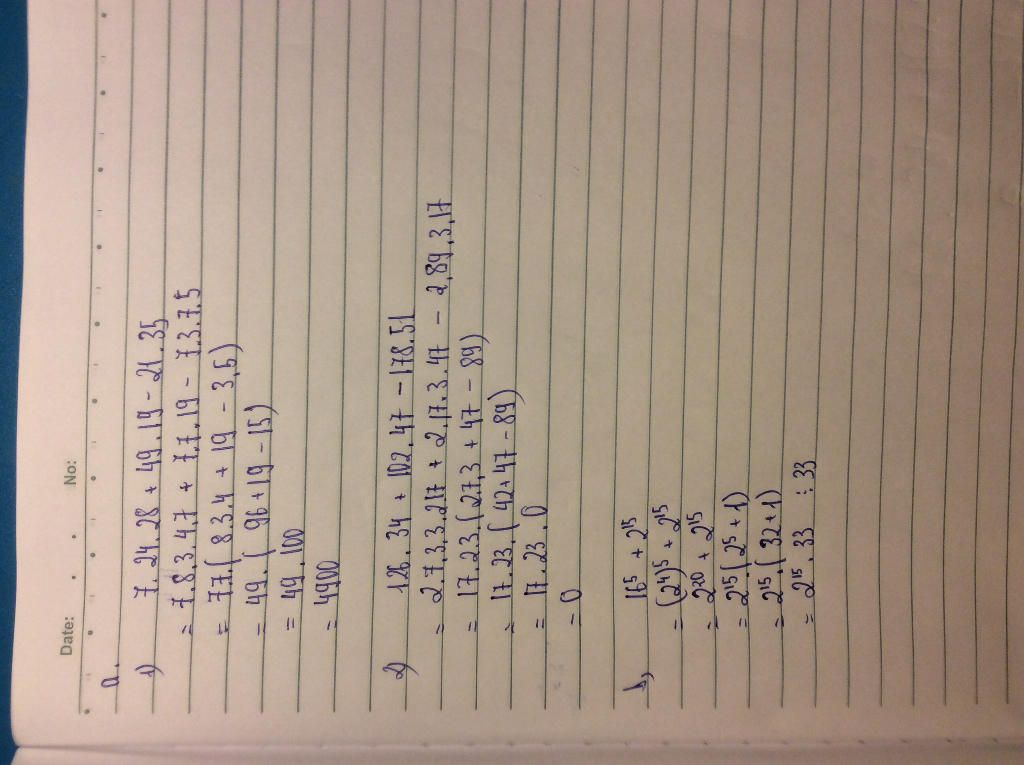 Date: No:
a.
1) 7.24.28 + 49.19 - 21.35
= 7.8.3.4.7 + 7.7.19 - 7.3.7.5
= 7.7(8.3.4 + 19 - 3.5)
= 49.(96+19-15)
= 49.100
= 4900
2) 126.34 + 102.47 - 178.51
= 2.7.3.3.2.17 + 2.17.3.47 - 2.89.3.17
= 17.2.3.(2.7.3 + 47 - 89)
= 17.2.3.(42+47-89)
= 17.2.3.0
= 0
b, 16⁵ + 2¹⁵
= (2⁴)⁵ + 2¹⁵
= 2²⁰ + 2¹⁵
= 2¹⁵.(2⁵+1)
= 2¹⁵.(32+1)
= 2¹⁵.33 ⋮ 33